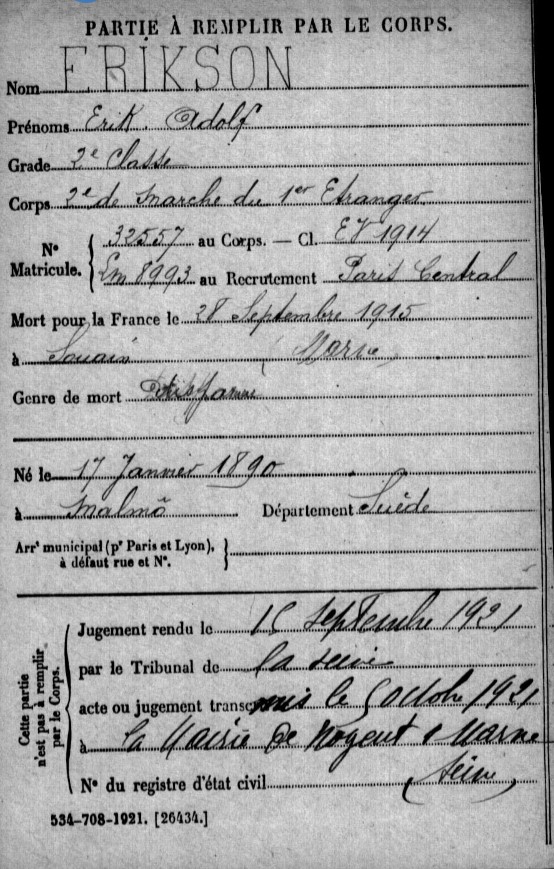 PARTIE À REMPLIR PAR LE CORPS.
Nom ERIKSON
Prénoms Erik. Adolf
Grade 2e Classe
Corps 2e de Marche du 1er Etranger
N° Matricule. { 32557 au Corps. — Cl. EV 1914
Em 8993 au Recrutement Paris Central
Mort pour la France le 28 Septembre 1915
à Souain (Marne)
Genre de mort
Né le 17 Janvier 1890
à Malmö Département Suède
Arrt municipal (pr Paris et Lyon), à défaut rue et N°. }
Cette partie n'est pas à remplir par le Corps.
Jugement rendu le 15 Septembre 1921
par le Tribunal de la Seine
acte ou jugement transcris le 5 octobre 1921
à la Mairie de Nogent s Marne
N° du registre d'état civil (Seine)
534-708-1921. [26434.]